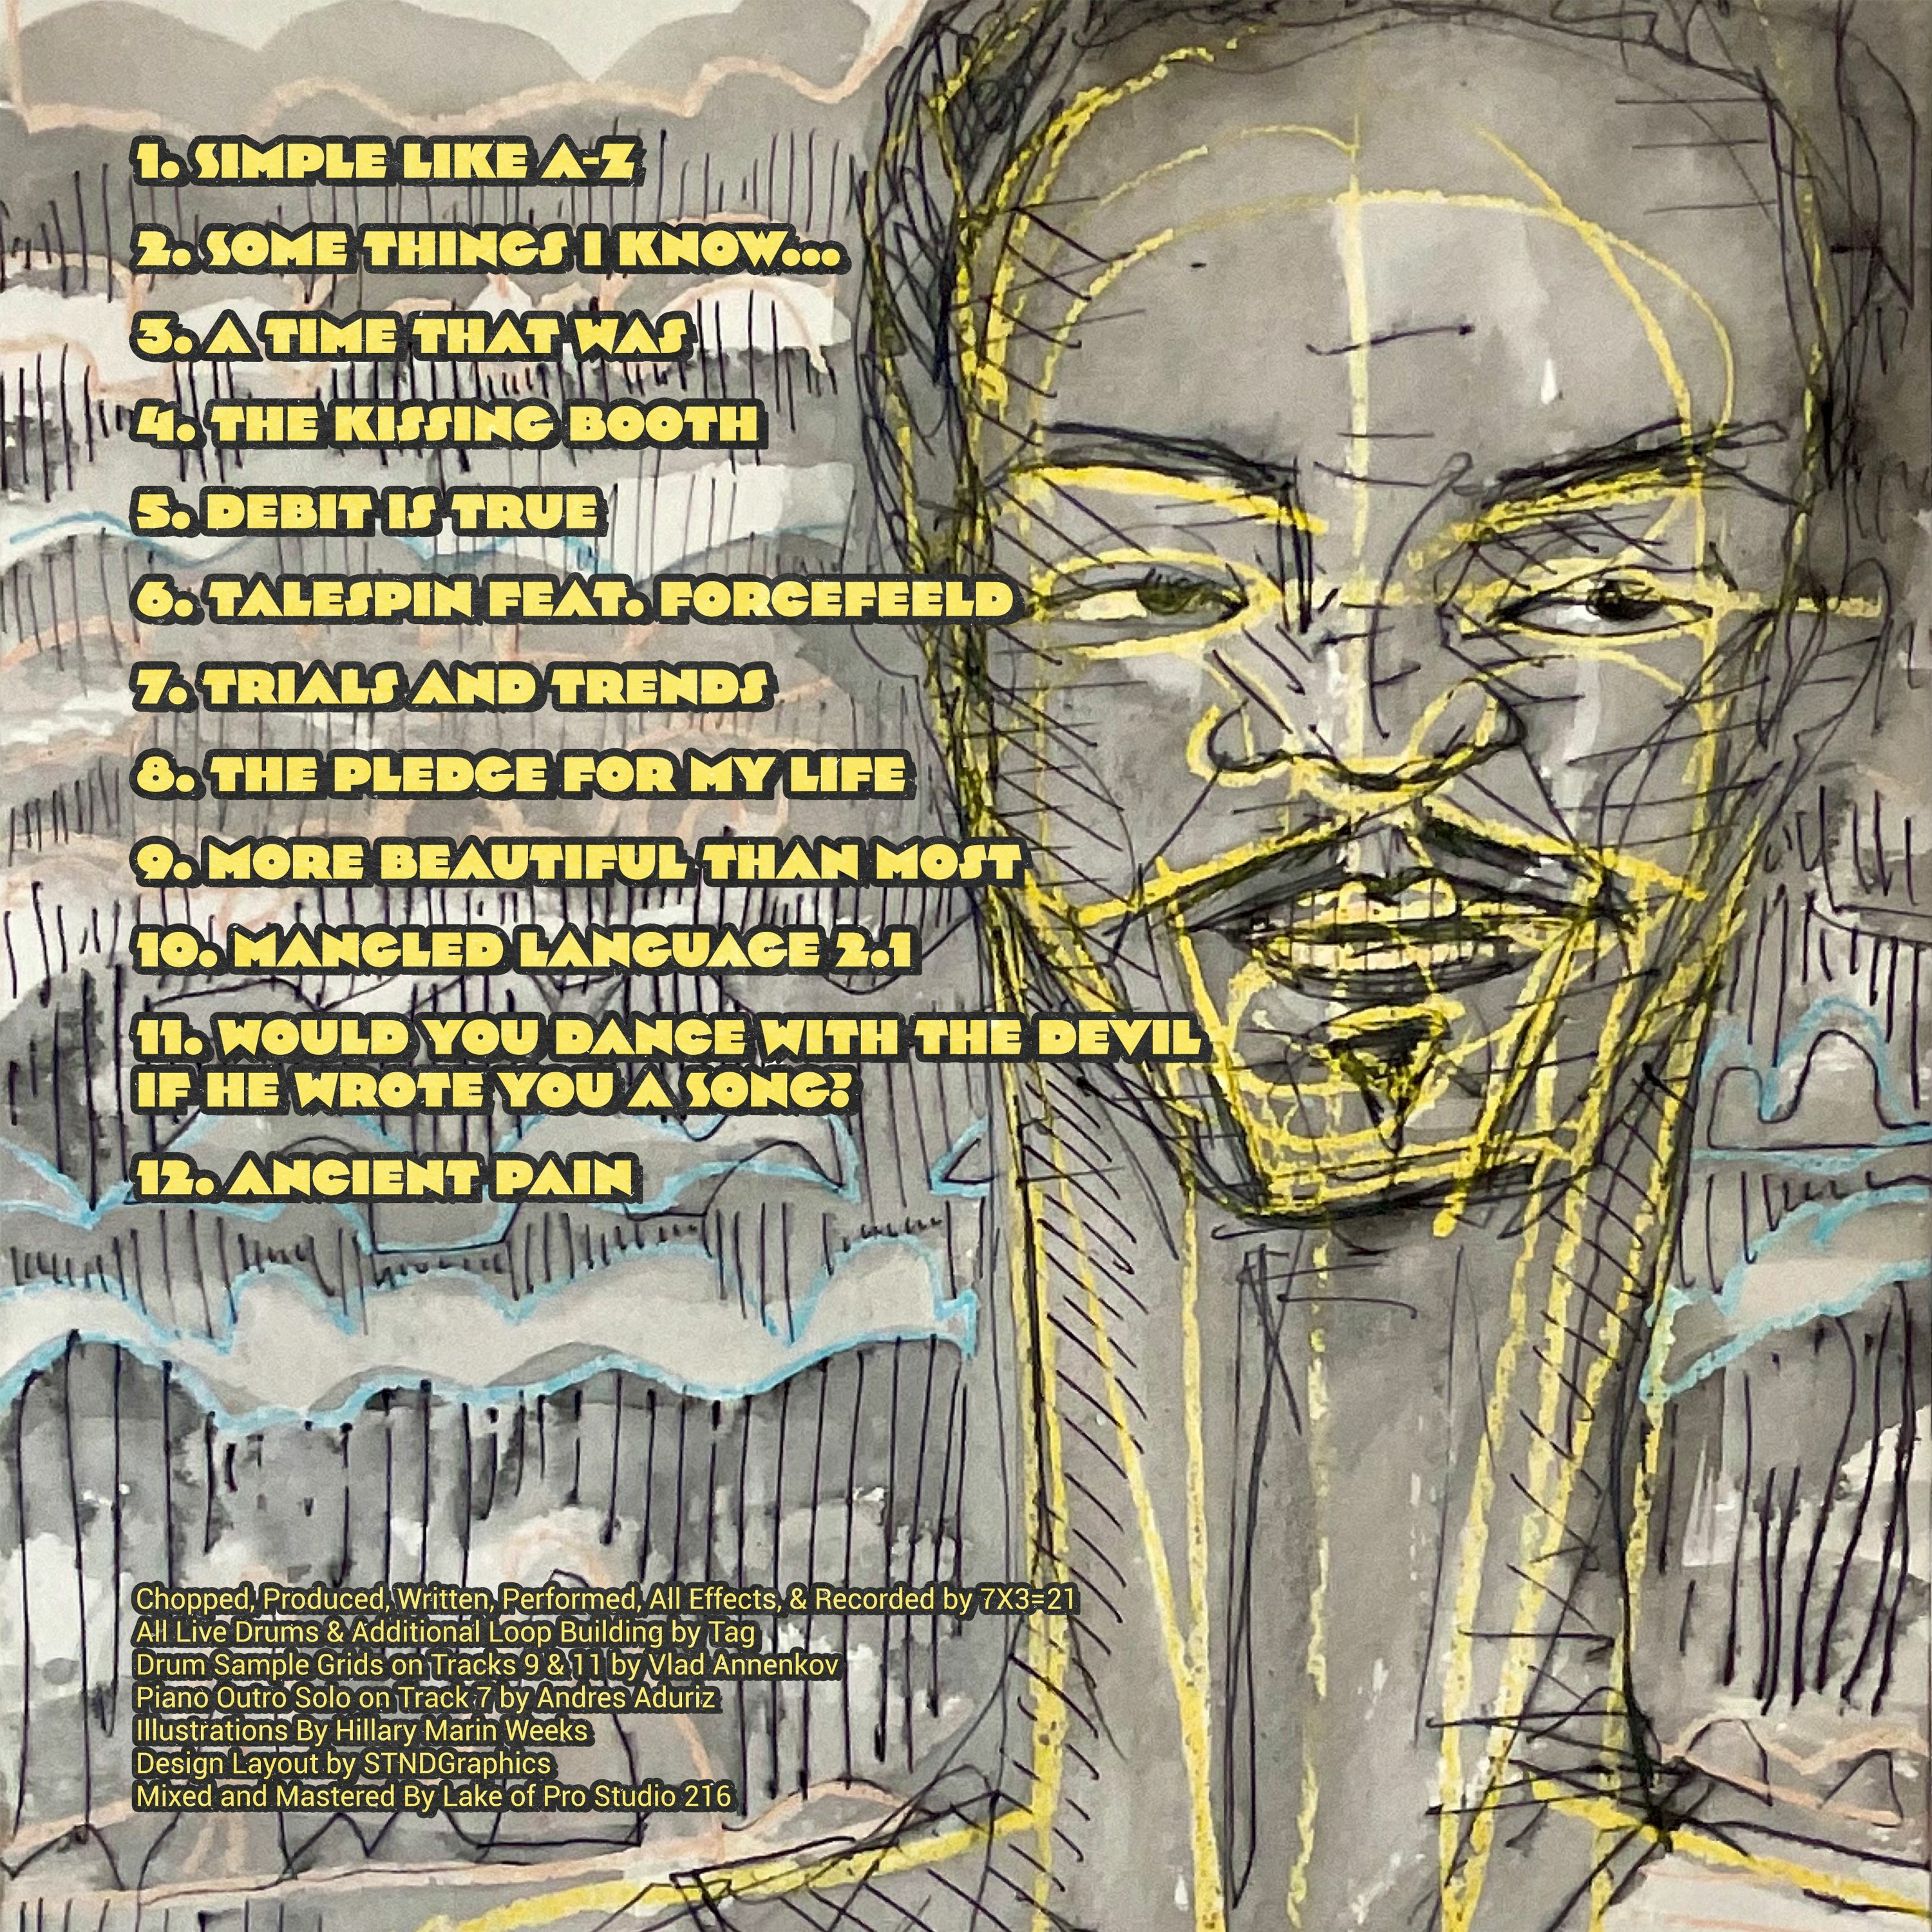 1. SIMPLE LIKE A-Z
2. SOME THINGS I KNOW...
3. A TIME THAT WAS
4. THE KISSING BOOTH
5. DEBIT IS TRUE
6. TALESPIN FEAT. FORCEFEELD
7. TRIALS AND TRENDS
8. THE PLEDGE FOR MY LIFE
9. MORE BEAUTIFUL THAN MOST
10. MANGLED LANGUAGE 2.1
11. WOULD YOU DANCE WITH THE DEVIL
IF HE WROTE YOU A SONG?
12. ANCIENT PAIN
Chopped, Produced, Written, Performed, All Effects, & Recorded by 7X3=21
All Live Drums & Additional Loop Building by Tag
Drum Sample Grids on Tracks 9 & 11 by Vlad Annenkov
Piano Outro Solo on Track 7 by Andres Aduriz
Illustrations By Hillary Marin Weeks
Design Layout by STNDGraphics
Mixed and Mastered By Lake of Pro Studio 216